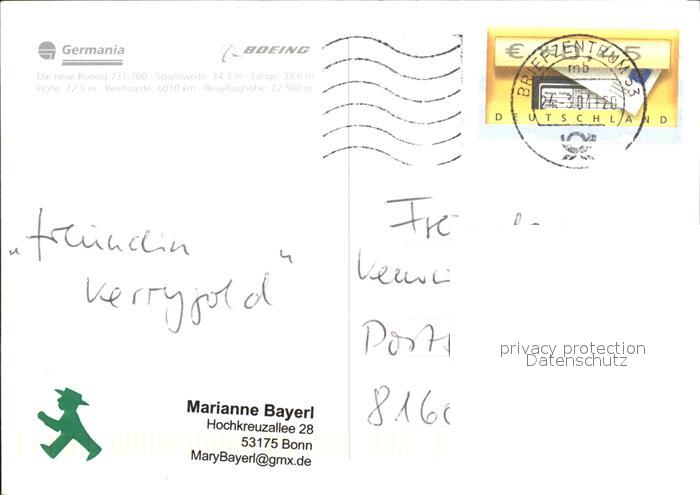 Germania
BOEING
Die neue Boeing 737-700 · Spannweite: 34,3 m · Länge: 33,6 m
Höhe: 12,5 m · Reichweite: 6010 km · Reiseflughöhe: 12 500 m
BRIEFZENTRUM 53
mb
DEUTSCHLAND
„Freundin
Kerrygold"
Fre
Post
816
privacy protection
Datenschutz
Marianne Bayerl
Hochkreuzallee 28
53175 Bonn
MaryBayerl@gmx.de